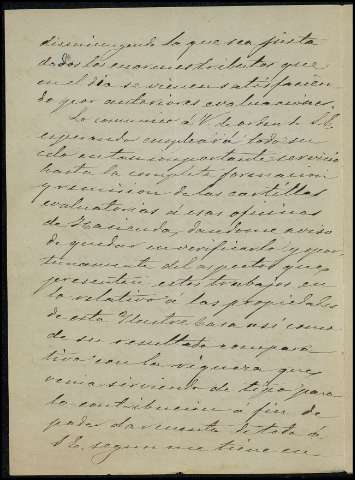 disminuyendo lo que sea justo
dados los enormes tributos que
en el dia se vienen satisfacien-
do por anteriores evaluaciones.
Lo comunico á V. de orden de S.E.
esperando empleará todo su
celo en tan importante servicio
hasta la completa formacion
y remision de las cartillas
evaluatorias á esas oficinas
de Hacienda, dandome aviso
de quedar en verificarlo y opor-
tunamente del aspecto que
presenten estos trabajos en
lo relativo á las propiedades
de esta Ilustre Casa asi como
de su resultado compara-
tivo con la riqueza que
venia sirviendo de tipo para
la contribucion á fin de
poder dar cuenta de todo á
S.E. segun me tiene en-